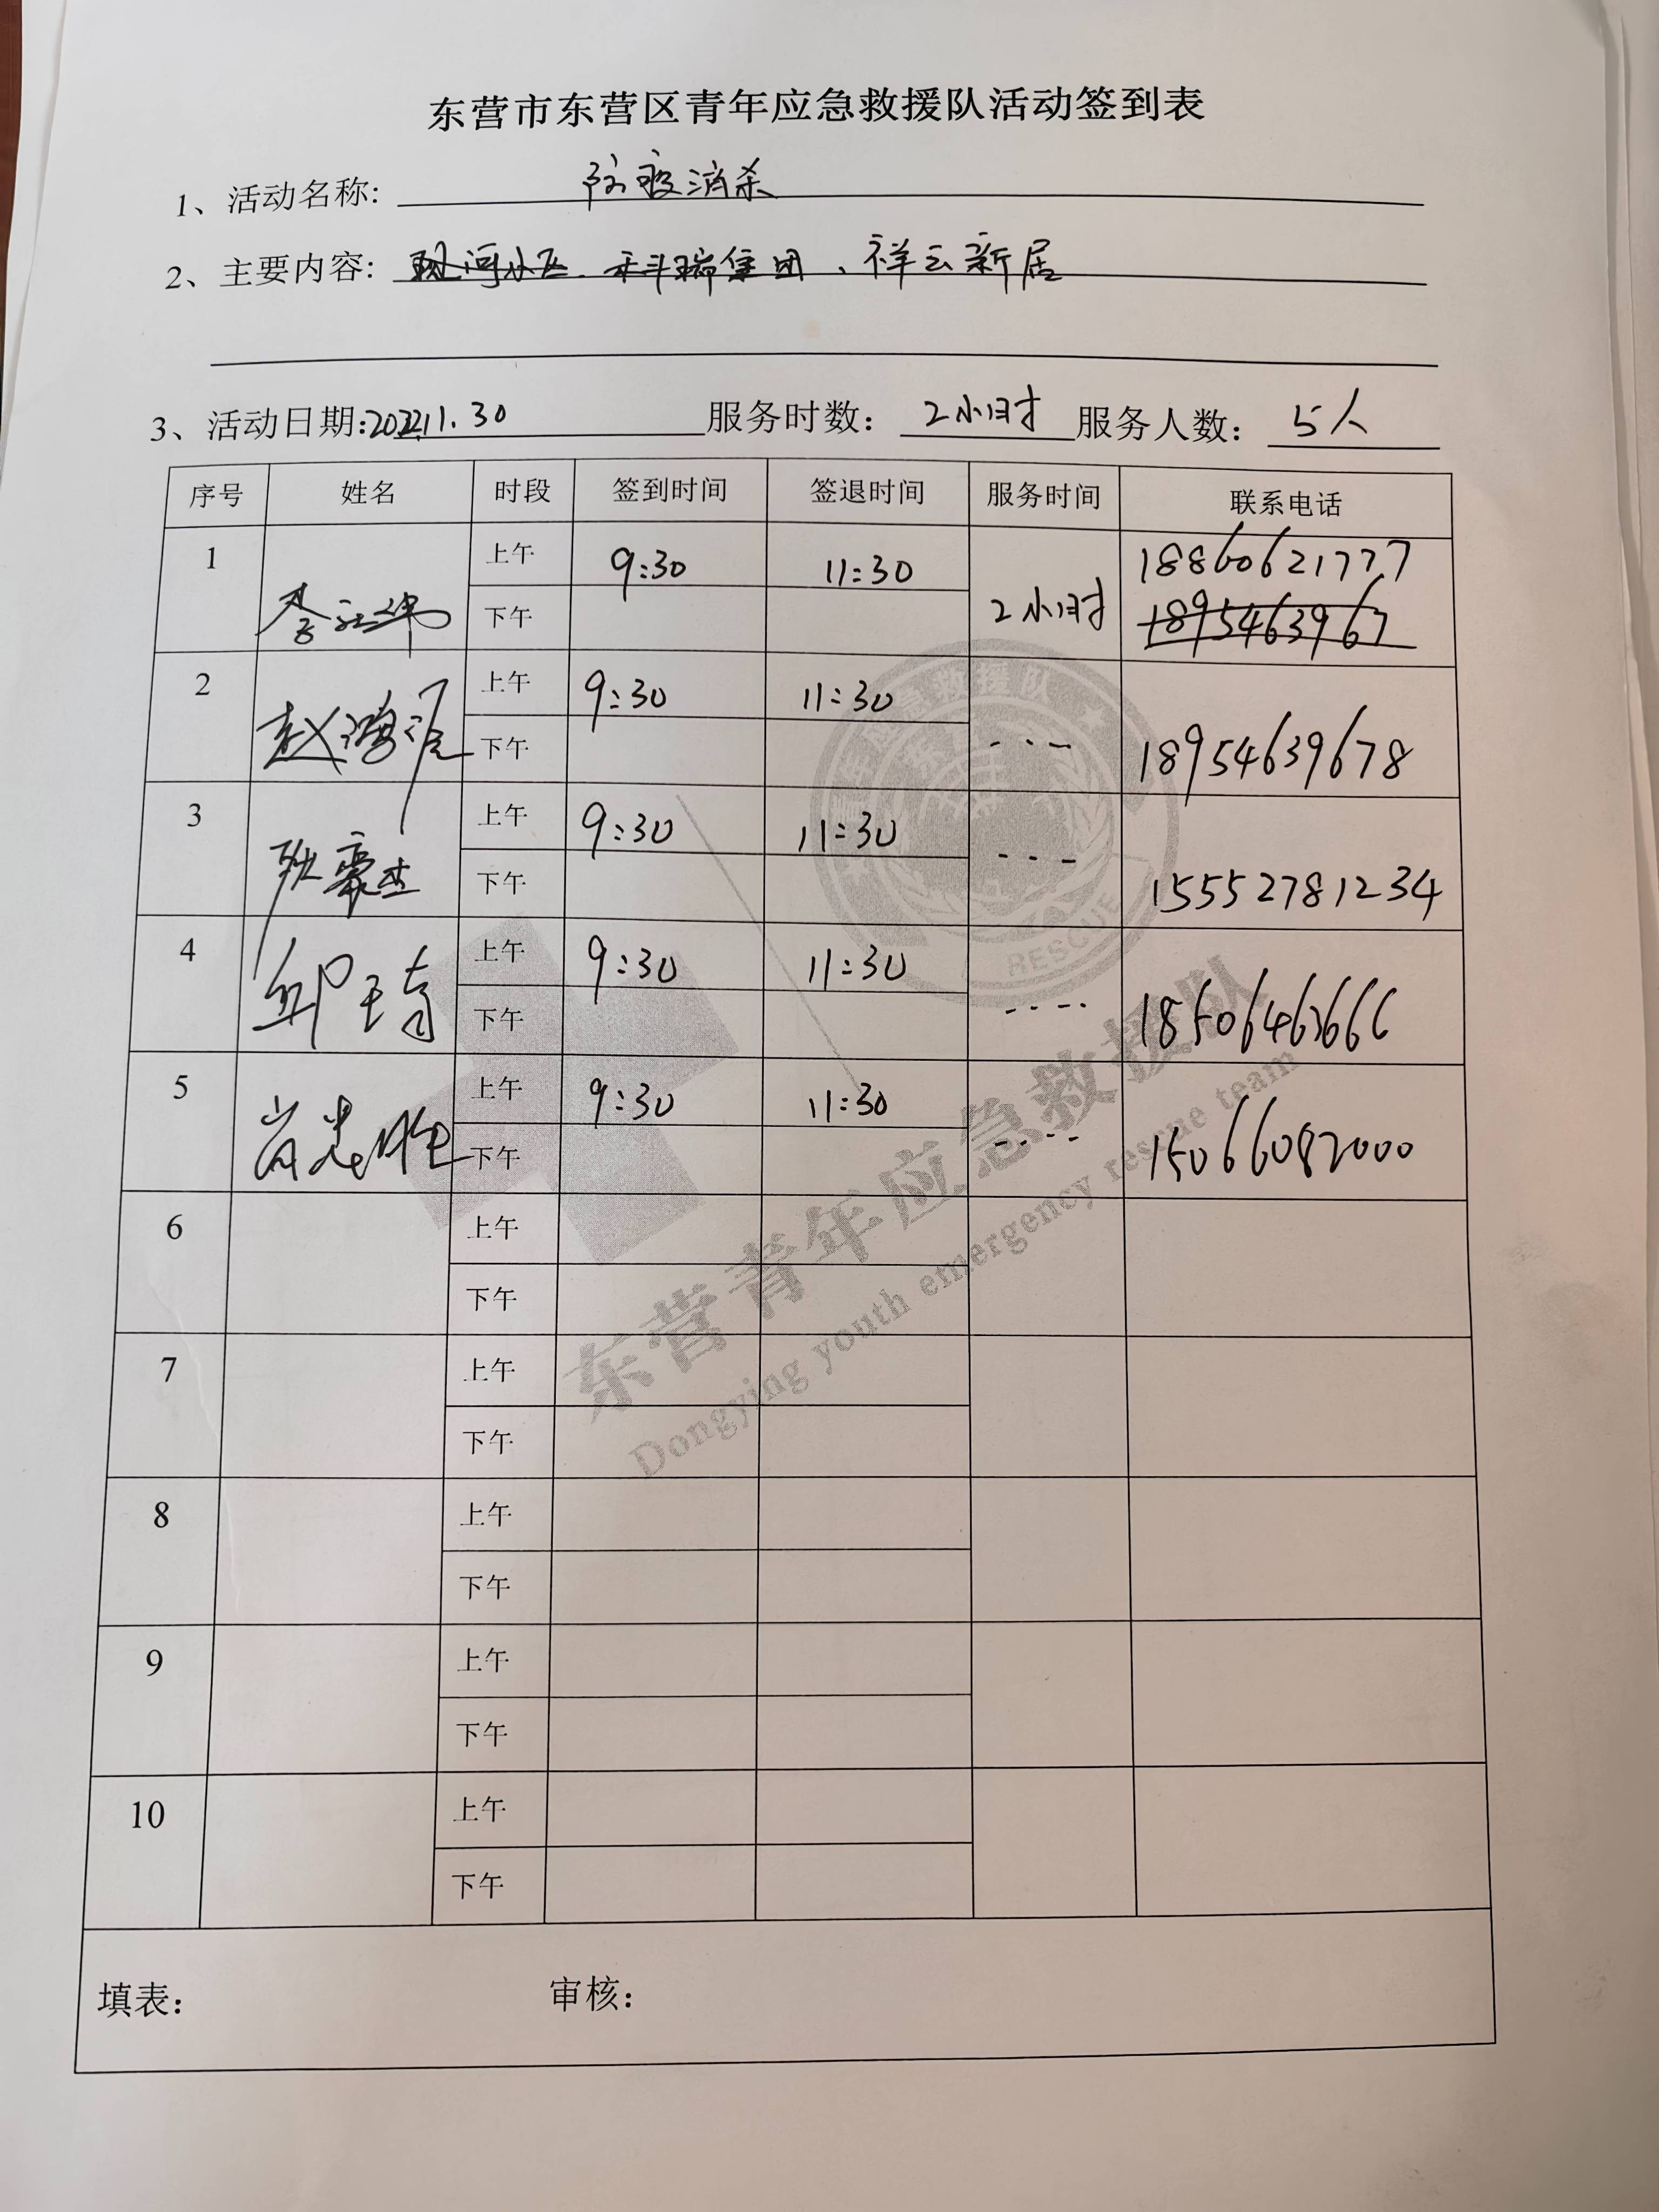 东营市东营区青年应急救援队活动签到表
1、活动名称: 防疫消杀
2、主要内容: 现河小区、科瑞集团、祥云新居
3、活动日期:2022.11.30 服务时数: 2小时 服务人数: 5人
序号 姓名 时段 签到时间 签退时间 服务时间 联系电话
1 上午 9:30 11:30 2小时 18860621777
下午 1895463967
2 赵鸿 上午 9:30 11:30 - - - 18954639678
下午
3 耿豪杰 上午 9:30 11:30 - - - 15552781234
下午
4 上午 9:30 11:30 - - - - 18506463666
下午
5 上午 9:30 11:30 - - - - 15066082000
下午
6 上午
下午
7 上午
下午
8 上午
下午
9 上午
下午
10 上午
下午
填表: 审核:
东营青年应急救援队
Dongying youth emergency rescue team
RESCUE